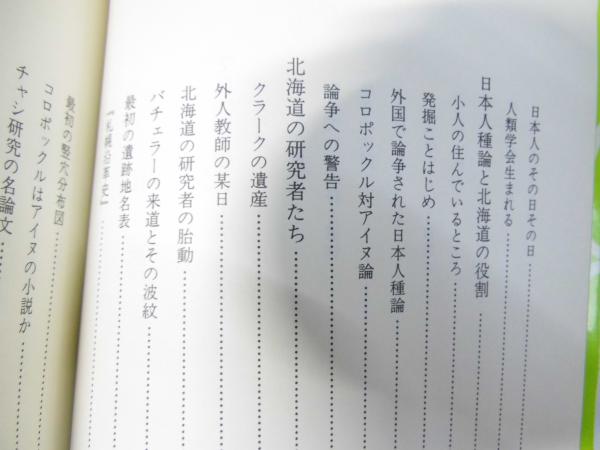 日本人のその日その日
人類学会生まれる
日本人種論と北海道の役割
小人の住んでいるところ
発掘ことはじめ
外国で論争された日本人種論
コロポックル対アイヌ論
論争への警告
北海道の研究者たち
クラークの遺産
外人教師の某日
北海道の研究者の胎動
バチェラーの来道とその波紋
最初の遺跡地名表
『札幌沿革史』
最初の竪穴分布図
コロポックルはアイヌの小説か
チャシ研究の名論文